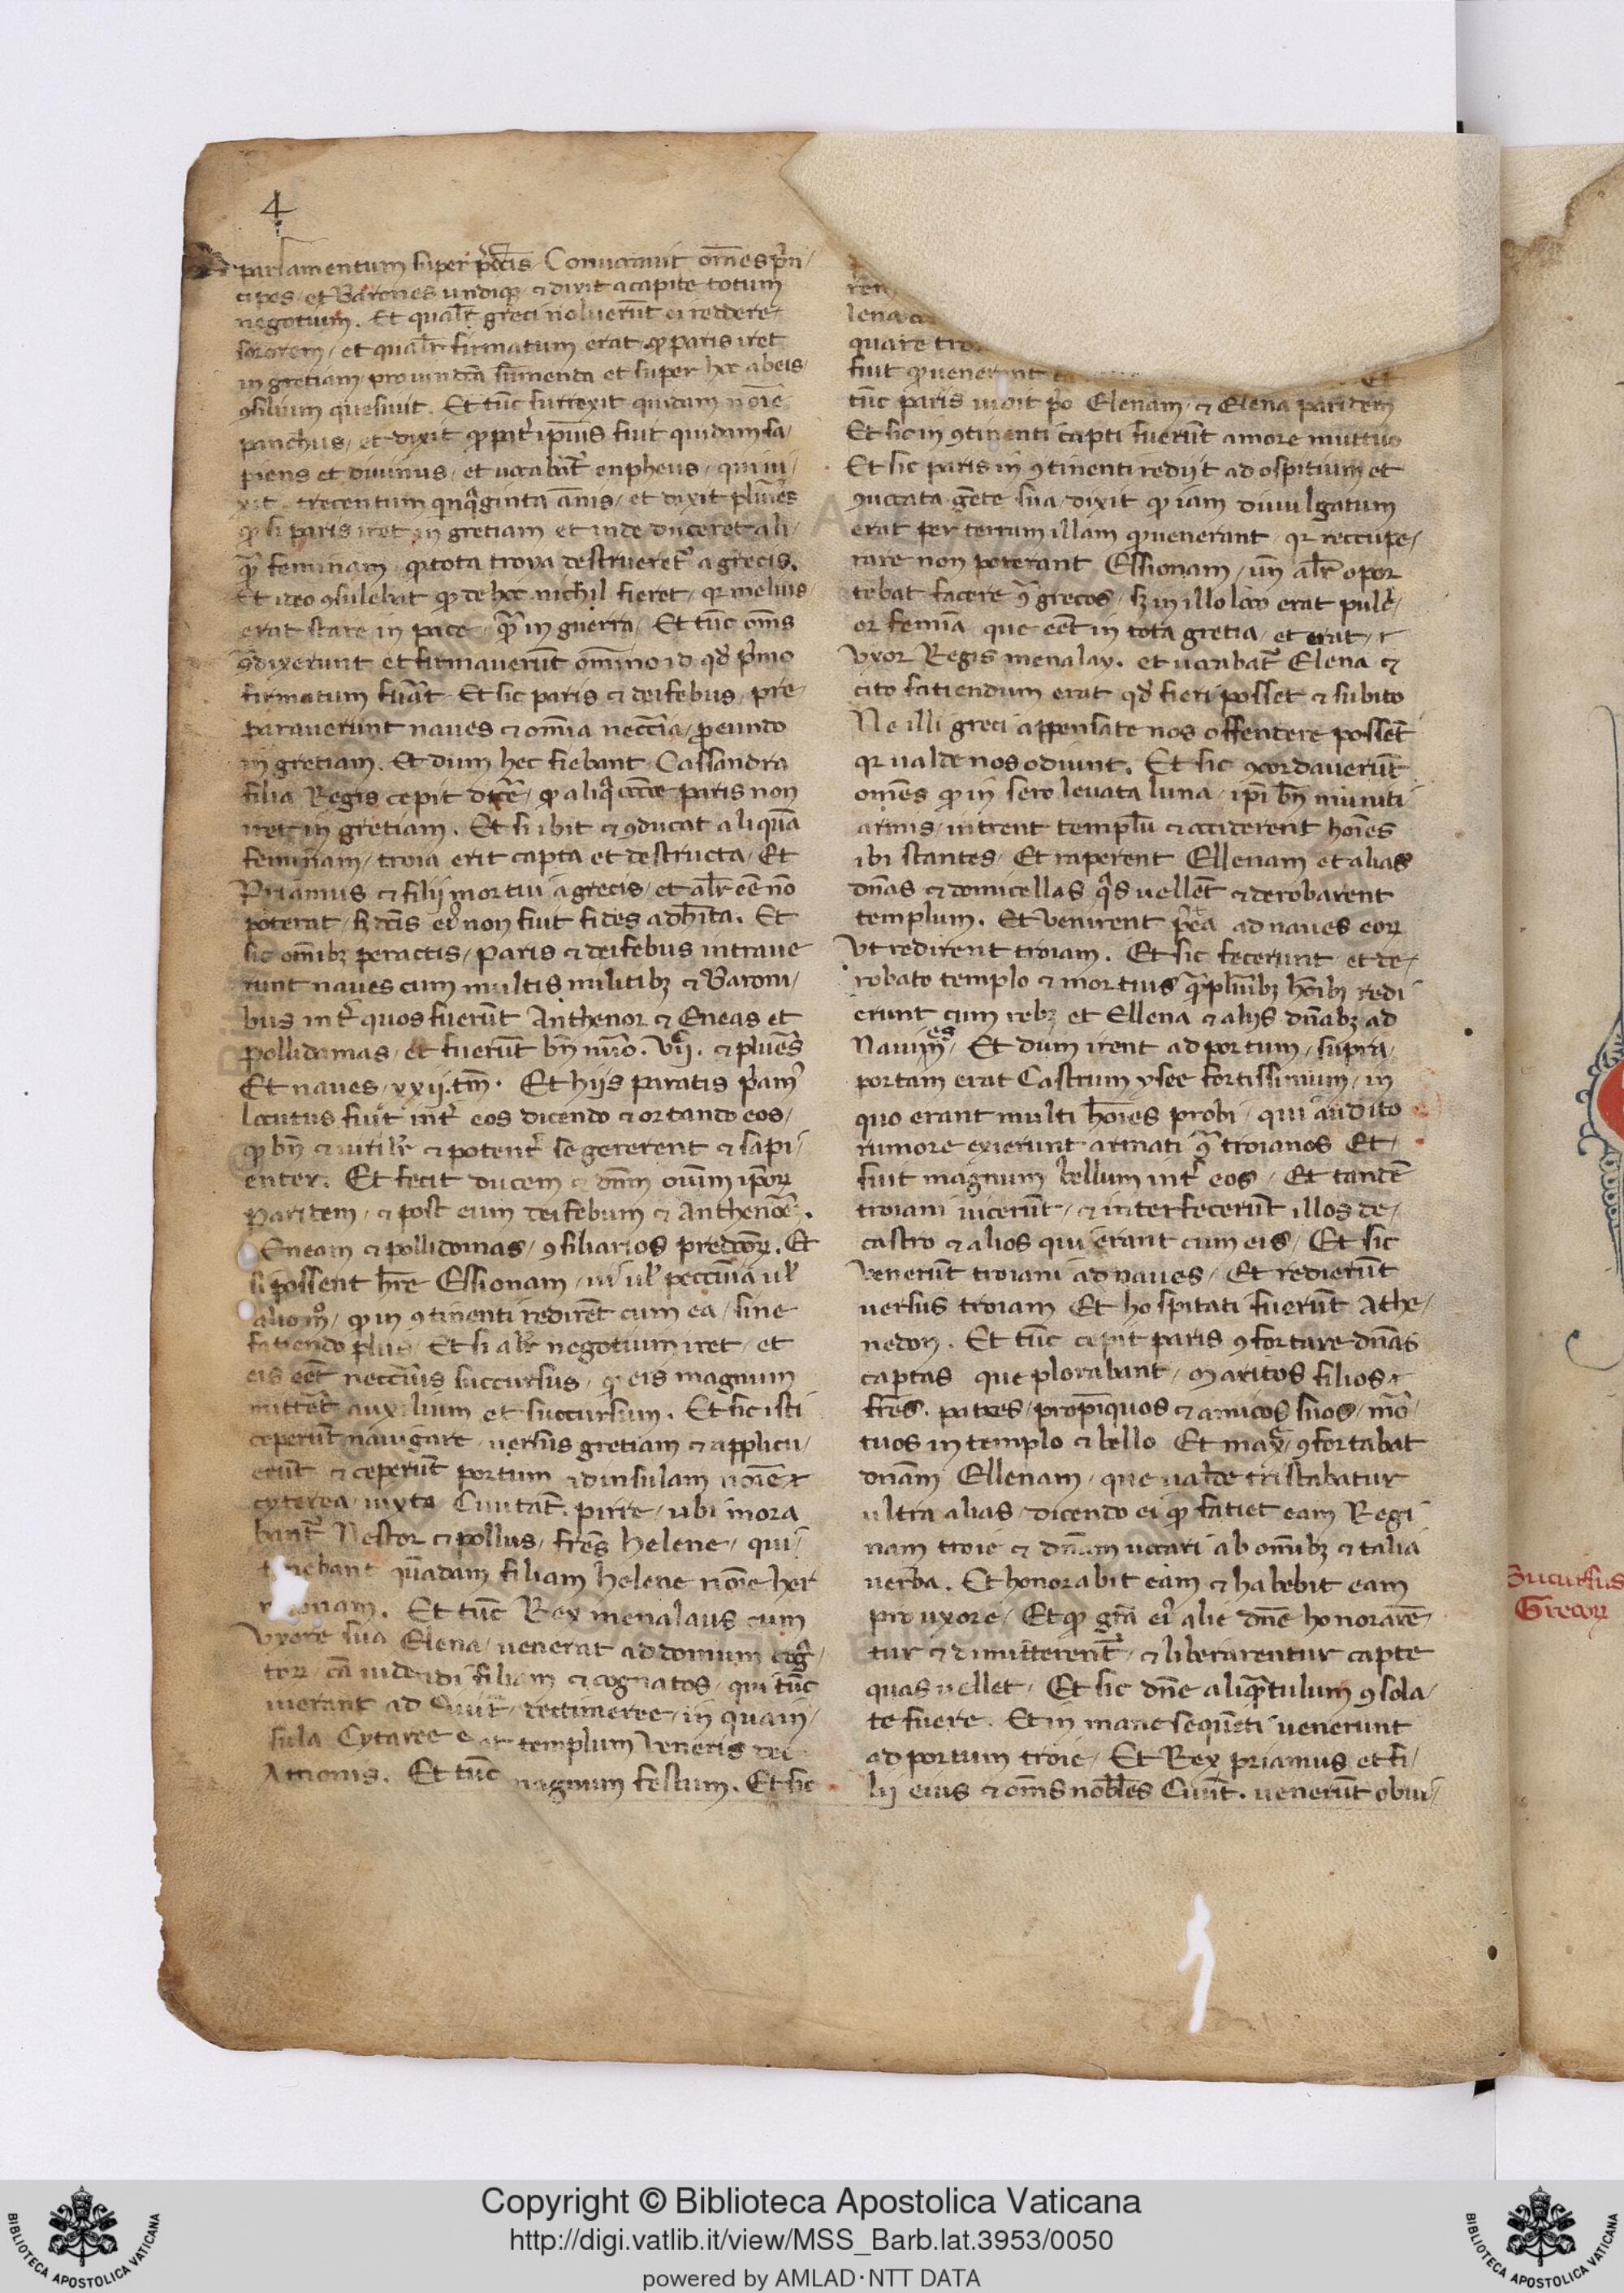 4
parlamentum super p̄dc̄is. Convocavit om̄es p̄n/
cipes, et Barones undiqꝫ ⁊ dixit a capite totum
negotium. Et qualr̄ greci noluer̄unt ei reddere
sororem, et qualr̄ firmatum erat qͦ paris iret
in gretiam pro vindc̄a sūmenda et super hoc ab eis
ꝯsilium quesivit. Et tūc surrexit quidam noīe
panthus, et dixit qͦ pat̄ ip̄ius fuit quidam sa/
piens et divinus, et vocabat̄ eupheus, qui vi/
xit trecentum qͥnq̄ginta annis, et dixit plur̄ies
qͦ si paris iret in gretiam et inde duceret ali/
qͣm feminam qͦ tota troya destrueret̄ a grecis.
Et ideo ꝯsulebat qͦ de hoc nichil fieret, qꝛ melius
erat stare in pace, qͣm in guerra. Et tūc om̄s
ꝯ̄dixerunt et firmaverūt om̄ino id qd̄ p̄mo
firmatum fuāt. Et sic paris ⁊ deifebus pre/
paraverunt naves ⁊ om̄ia neccīa, pro eundo
in gretiam. Et dum hec fiebant Cassandra
filia Regis cepit dic̄e, qͦ aliq̄ occ̄oe paris non
iret in gretiam. Et si ibit ⁊ ꝯducat aliquā
feminam, troia erit capta et destructa, Et
Priamus ⁊ filij mortui a grecis, et alr̄ eē nō
poterat, sꝫ dc̄is ei non fuit fides adhīta. Et
sic om̄ibꝫ peractis, Paris ⁊ deifebus intrave
runt naves cum multis militibꝫ ⁊ Baroni/
bus int̄ quos fuerūt Anthenor ⁊ Eneas et
pollidamas, et fuerūt bn̄ nūo. vij. ⁊ plures
Et naves, xxij. tm̄. Et hijs paratis p̄am̄
locutus fuit int̄ eos dicendo ⁊ ortando eos,
qͦ bn̄ ⁊ virilr̄ ⁊ potent̄ se gererent ⁊ sapi/
enter. Et fecit ducem ⁊ dn̄m om̄im ip̄oꝝ
paridem, ⁊ post eum deifebum ⁊ Anthenoē.
Eneam ⁊ pollidomas, ꝯsiliarios predc̄oꝝ. Et
si possent hr̄e Essionam, vi ul̄ peccunia ul̄
alio mͦ, qͦ in ꝯtinenti redirēt cum ea, sine
fatiendo plus, Et si alr̄ negotium iret, et
eis eēt neccīus succursus, qͦ eis magnum
mittet auxilium et succursum. Et sic isti
ceperūt navigare versus gretiam ⁊ applicu/
erūt ⁊ ceperūt portum ad insulam noīe ⁊
cyterea, iuxta Civitat̄. pirre, ubi mora
bant̄ Nestor ⁊ pollus, fr̄es helene, qui
tenebant qͣdam filiam helene noīe her
Et tūc Rex menalaus cum
Uxore sua Elena, venerat ad domum coḡ
toꝝ, cā videndi filiam ⁊ cognatos, qui tūc
iverant ad Civit̄. in qua in/
sula Cytaree erat templum Veneris
Et tūc magnum festum. Et sic
lena
quare tro
fuit qͦ venerunt
tūc paris vidit p̄o Elenam, ⁊ Elena paridem
Et sic in ꝯtinenti capti fuerūt amore muttuo
Et sic paris in ꝯtinenti redijt ad ospitium et
ꝯvocata gēte sua, dixit qͦ iam divulgatum
erat per terram illam qͦ venerant, qꝛ reccupe/
rare non poterant Essionam, un̄ alr̄ opor
tebat facere ꝯ̄ grecos, sꝫ in illo loco erat pulc̄/
or femīa que eēt in tota gretia, et erat, ⁊
Uxor Regis menalay. et vocabat̄ Elena ⁊
cito fatiendum erat qd̄ fieri posset ⁊ subito
Ne illi greci appensate nos offendere possēt
qꝛ valde nos odiunt. Et sic ꝯcordaverūt
om̄es qͦ in sero levata luna, ip̄i bn̄ muniti
armis, intrent templū ⁊ occiderent hoīes
ibi stantes, Et raperent Ellenam et alias
dn̄as ⁊ domicellas qͣs vellēt ⁊ derobarent
templum. Et venirent p̄ea ad naves eoꝝ
Ut redirent troiam. Et sic fecerunt et de/
robato templo ⁊ mortuis qͣplur̄ibꝫ hoībꝫ redi
erunt cum rebꝫ et Ellena ⁊ alijs dn̄abꝫ ad
Navim̄es, Et dum irent ad portum, supra
portam erat Castrum ysee fortissimum, in
quo erant multi hoīes probi, qui audito
rumore exierunt armati ꝯ̄ troianos Et
fuit magnum bellum int̄ eos, Et tandē
troiani vicerūt, ⁊ interfecerūt illos de
castro ⁊ alios qui erant cum eis, Et sic
venerūt troiani ad naves, Et redierūt
versus troiam Et hospitati fuerūt Athe/
nedon. Et tūc cepit paris ꝯfortare dn̄as
captas que plorabant, Maritos filios ⁊
fr̄es. patres, propīquos ⁊ amicos suos, mō
tuos in templo ⁊ bello Et max̄ ꝯfortabat
dn̄am Ellenam, que valde tristabatur
ultra alias, dicendo ei qͦ fatiet eam Regi
nam troie ⁊ dn̄am vocari ab om̄ibꝫ ⁊ talia
verba. Et honorabit eam ⁊ habebit eam
pro uxore, Et qͦ gr̄a ei alie dn̄e honorarē
tur ⁊ dimitterent̄, ⁊ liberarentur capte
quas vellet, Et sic dn̄e aliqͣntulum ꝯsola/
te fuere. Et in mane sequēti venerunt
ad portum troie, Et Rex priamus et fi/
lij eius ⁊ om̄s nobiles Civit̄. venerūt obvi/
Sucursus
Grecoꝝ
Copyright © Biblioteca Apostolica Vaticana
http://digi.vatlib.it/view/MSS_Barb.lat.3953/0050
powered by AMLAD·NTT DATA
BIBLIOTECA APOSTOLICA VATICANA
BIBLIOTECA APOSTOLICA VATICANA